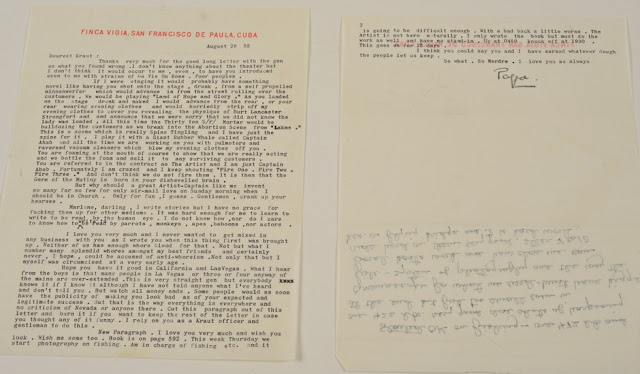 FINCA VIGIA, SAN FRANCISCO DE PAULA, CUBA
August 28 55
Dearest Kraut :
Thanks very much for the good long letter with the gen
on what you found wrong . I don't know anything about the theater but
I don't think it would occur to me , even , to have you introduced
even to me with strains of La Vie En Rose . Poor peoples .
If I were staging it would probably have something
novel like having you shot onto the stage , drunk , from a self propelled
minnenwerfer which would advance in from the street rolling over the
customers . We would be playing "Land of Hope and Glory" . As you landed
on the stage drunk and naked I would advance from the rear , or your
rear wearing evening clothes and would hurriedly strip off my
evening clothes to cover you revealing the physique of Burt Lancaster
Strongfort and announce that we were sorry that we did not know the
lady was loaded . All this time the Thirty ton S/P/ Mortar would be
bulldozing the customers as we break into the Abortion Scene from "Lakme ."
This is a scene which is really Spine Tingling and I have just the
spine for it . I play it with a Giant Rubber Whale called Captain
Ahab and all the time we are working on you with pulmotors and
reversed vacuum cleaners which blow my evening clothes off you .
You are foaming at the mouth of course to show that we are really acting
and we bottle the foam and sell it to any surviving customers .
You are referred to in the contract as The Artist and I am just Captain
Ahab . Fortunately I am crazed and I keep shouting "Fire One . Fire Two .
Fire Three ." And don't think we do not fire them . It is then that the
Germ of the Mutiny is born in your dishevelled brain .
But why should a great Artist-Captain like me invent
so many for so few for only air-mail love on Sunday morning when I
should be in Church . Only for fun , I guess . Gentlemen , crank up your
hearses .
Marlene, darling , I write stories but I have no grace for
fucking them up for other mediums . It was hard enough for me to learn to
write to be read by the human eye . I do not know how , nor do I care
to know how to be read by parrots , monkeys , apes , baboons , nor actors .
I love you very much and I never wanted to get mixed in
any business with you as I wrote you when this thing first was brought
up . Neither of us has enough whore blood for that . Not but what I
number many splendid whores amongst my best friends and certainly
never , I hope , could be accused of anti-whoreism . Not only that but I
myself was circumcised at a very early age .
Hope you have it good in California and Las Vegas . What I hear
from the boys is that many people in La Vegas or three or four anyway of
the mains are over-extended . This is very straight gen but everybody
knows it if I know it although I have not told anyone what I've heard
and don't tell you . But watch all money ends . Some people would as soon
have the publicity of making you look bad as of your expected and
legitimate success . But that is the way everything is everywhere and
no criticism of Nevada or anyone there . Cut this paragraph out of this
letter and burn it if you want to keep the rest of the letter in case
you thought any of it funny . I rely on you as a Kraut officer and
gentleman to do this .
New Paragraph . I love you very much and wish you
luck . Wish me some too . Book is on page 592 . This week Thursday we
start photography on fishing . Am in charge of fishing etc. and it
2
is going to be difficult enough . With a bad back a little worse . The
Artist is not here naturally . I only wrote the book but must do the
work as well and have no stand-in . Up at 0450 knock off at 1930 .
This goes on for 15 days .
I think you could say you and I have earned whatever dough
the people let us keep .
So what . So Merdre . I love you as always
Papa